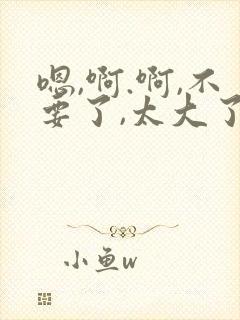 嗯,啊.啊,不
要了,太大了
小鱼w